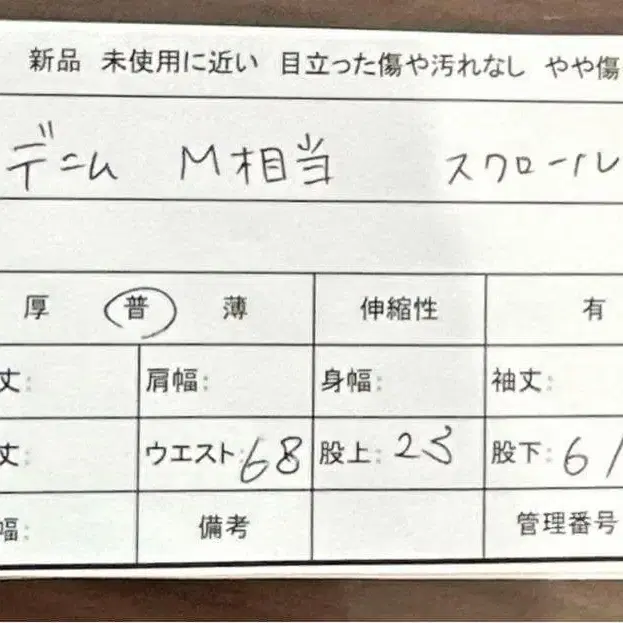 新品 未使用に近い 目立った傷や汚れなし やや傷
デニム M相当 スクロール
厚 普 薄 伸縮性 有
丈: 肩幅: 身幅: 袖丈:
丈: ウエスト:68 股上:25 股下:61
幅: 備考 管理番号